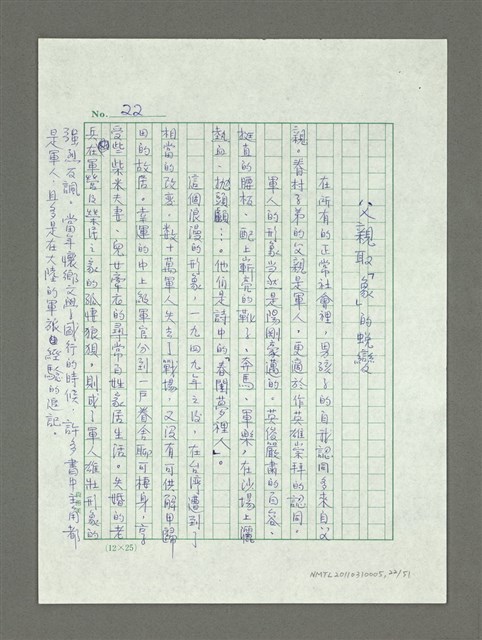 No. 22
父親取「象」的蛻變
在所有的正常社會裡，男孩子的自我認同多來自父
親。眷村子弟的父親是軍人，更適於作英雄崇拜的認同。
軍人的形象當然是陽剛豪邁的。英俊嚴肅的面容、
挺直的腰桿、配上嶄亮的靴子、奔馬、軍樂，在沙場上灑
熱血、拋頭顱…。他們是詩中的「春閨夢裡人」。
這個浪漫的形象，一九四九年之後，在台灣遭到了
相當的改變。數十萬軍人失去了戰場，又沒有可供解甲歸
田的故居。幸運的中上級軍官分到一戶眷舍聊可棲身，享
受些柴米夫妻、兒女繞在的尋常百姓家居生活。失婚的老
兵在軍營及榮民之家的孤悽狼狽，則成了軍人雄壯形象的
強烈反諷。當年懷鄉文學了國行的時候，許多書中主角都
是軍人，且多是在大陸的軍旅經驗的追記。
(12×25)
NMTL20110310005, 22/51